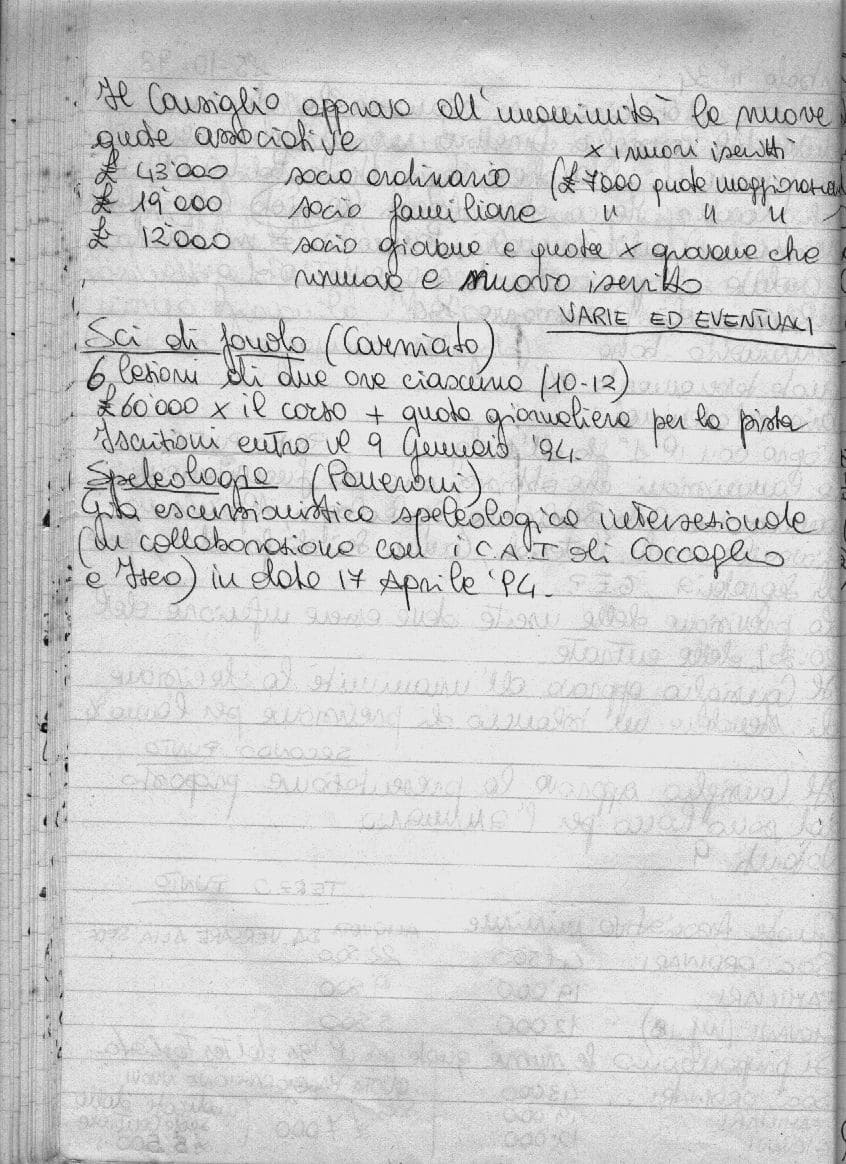 Il Consiglio approva all'unanimità le nuove
quote associative
x i nuovi iscritti
£ 43'000 socio ordinario (£ 7000 quota maggiorazione
£ 19'000 socio familiare " " "
£ 12'000 socio giovane e quota x giovane che
rinnova e nuovo iscritto
VARIE ED EVENTUALI
Sci di fondo (Carminato)
6 lezioni di due ore ciascuna (10-12)
£ 60'000 x il corso + quota giornaliera per la pista
Iscrizioni entro il 9 Gennaio '94.
Speleologia (Paneroni)
Gita escursionistica speleologica intersezionale
(in collaborazione con i C.A.I di Coccaglio
e Iseo) in data 17 Aprile '94.